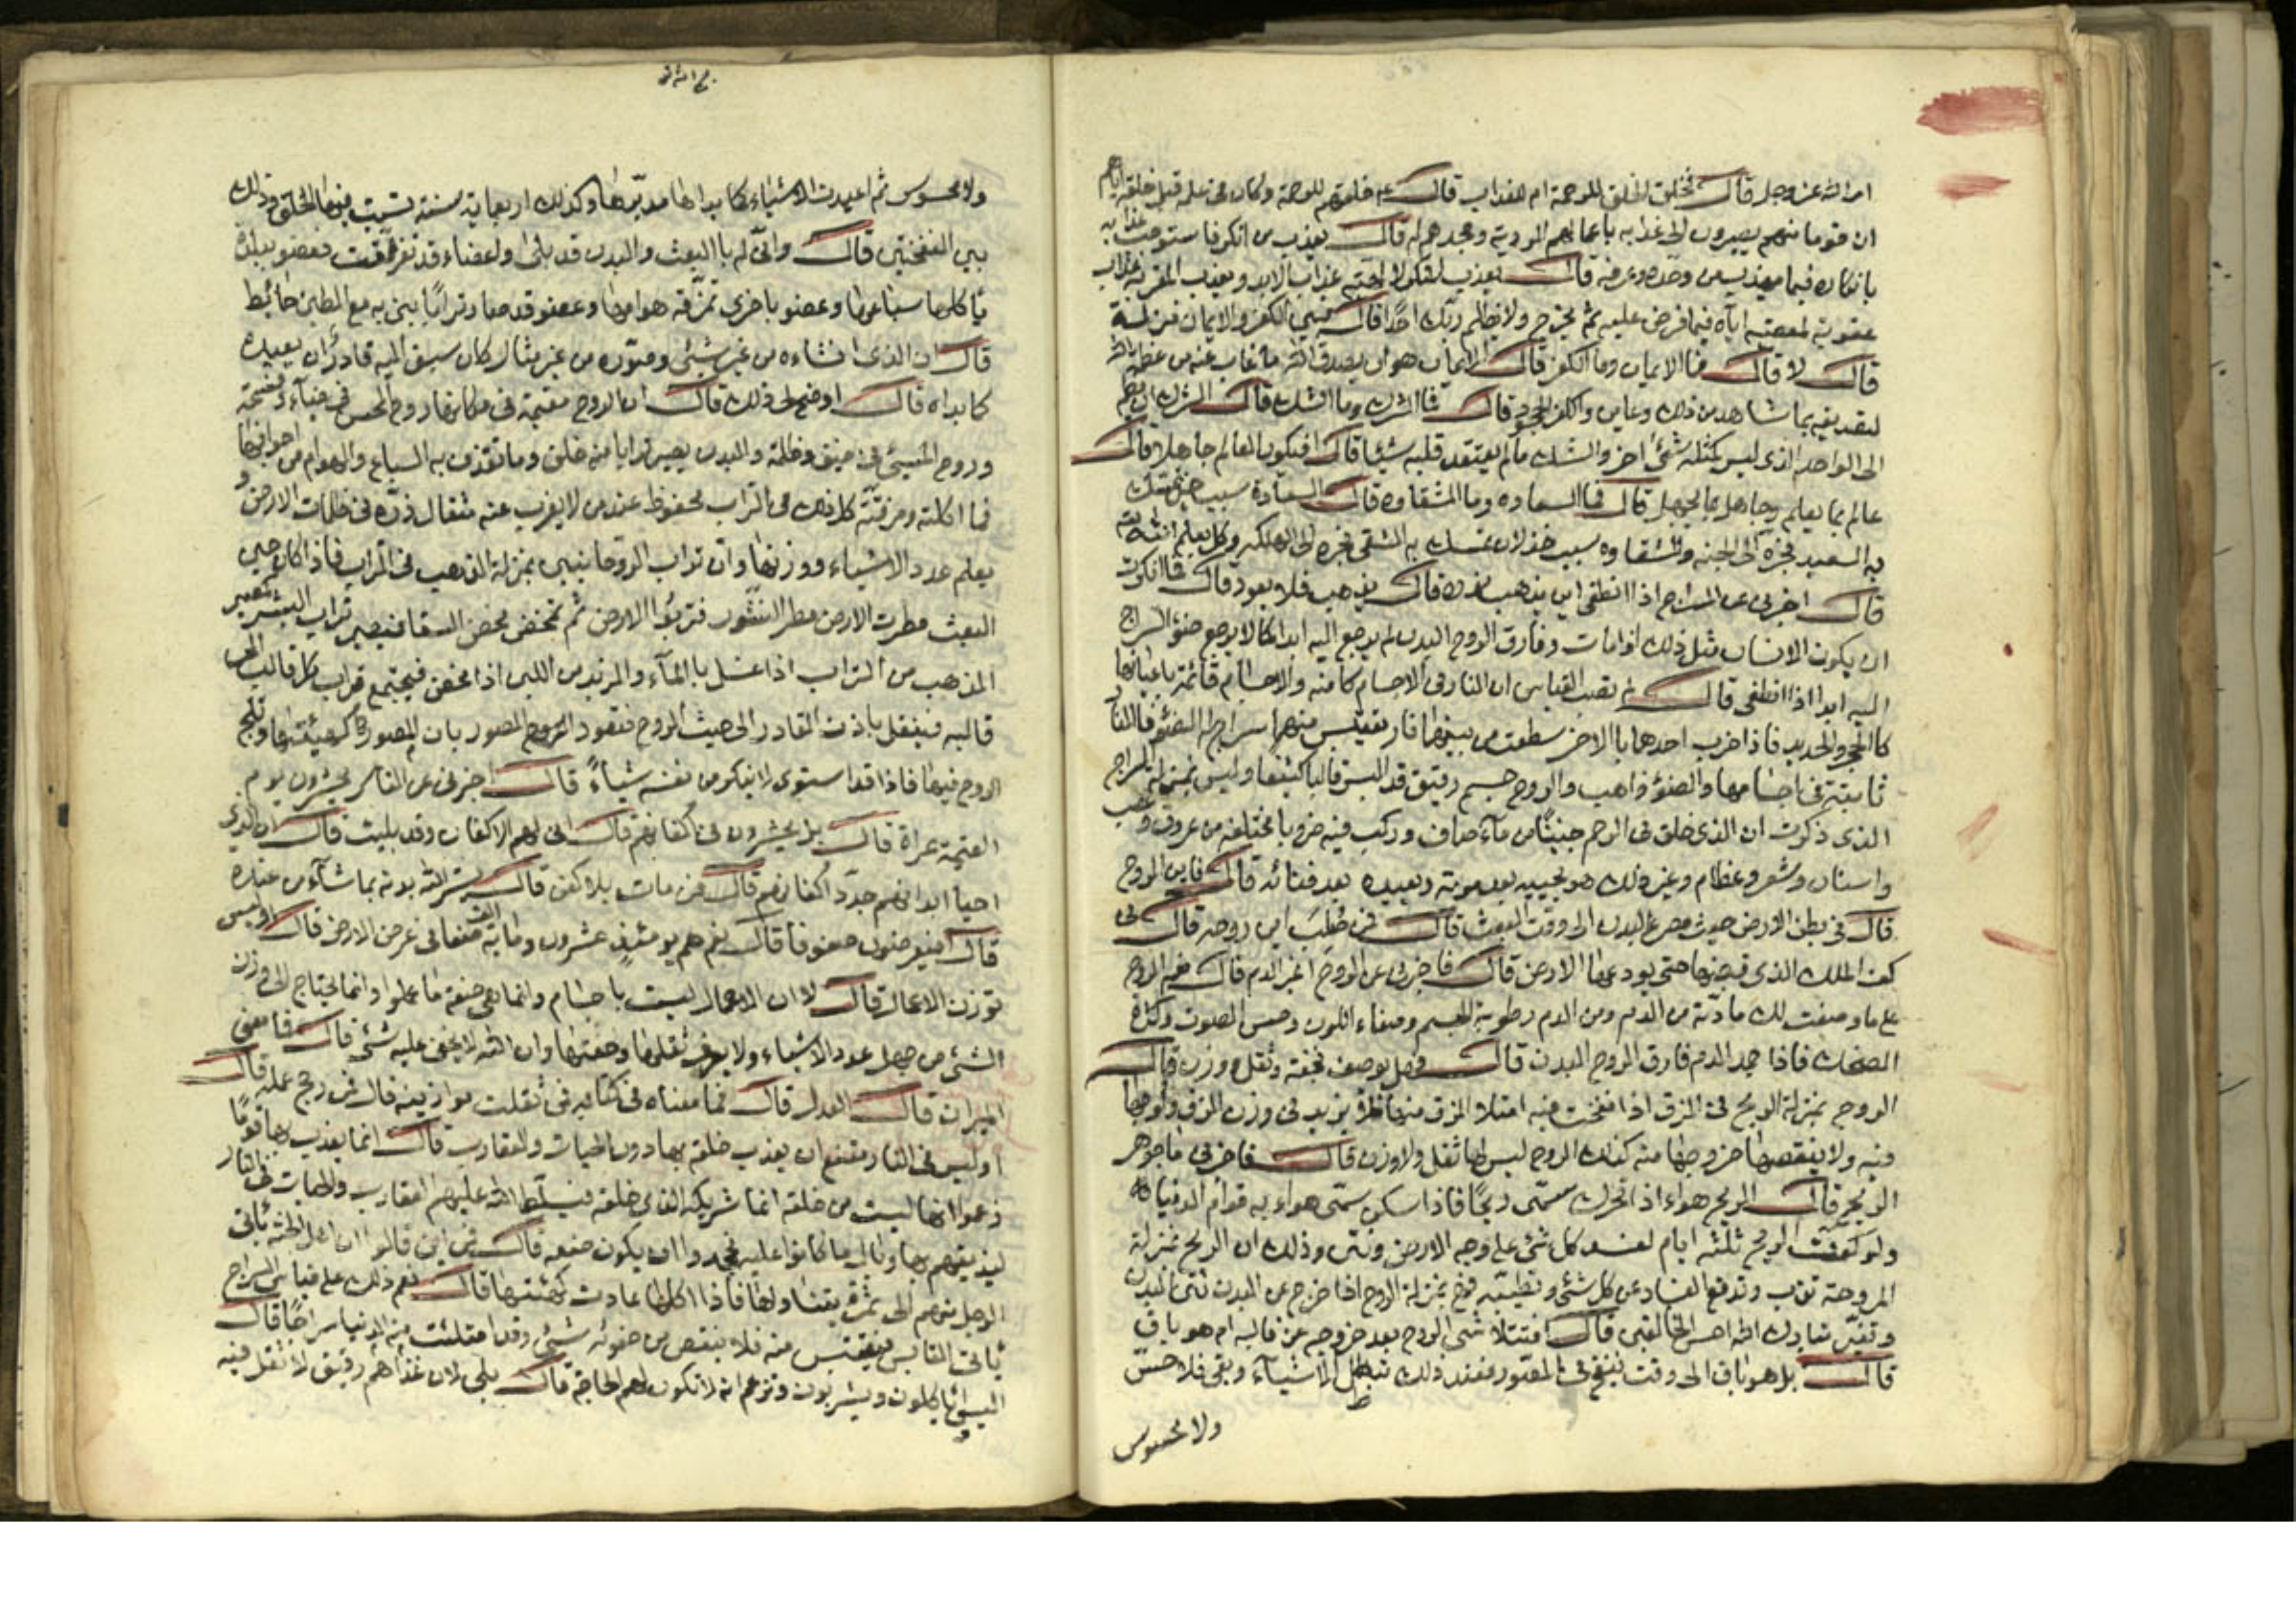 امر الله عز وجل قال فخلق الخلق للرحمة ام للعذاب قال عم خلقهم للرحمة وكان في علمه قبل خلقه اياهم
ان قوما منهم يصيرون الى عذابه باعمالهم الردية وجحدهم له قال يعذب من انكر فاستوجب عذابه
بانكاره فيما يعذب من وحده وعرفه قال يعذب المنكر لالهيته عذاب الابد ويعذب المقر به عذاب
عقوبة لمعصيته اياه فيما فرض عليه ثم يخرج ولا يظلم ربك احدا قال فبين الكفر والايمان منزلة
قال لا قال فما الايمان وما الكفر قال الايمان هو ان يصدق الله ما غاب عنه من عظمة الله
لتصديقه بما شاهد من ذلك وعاين والكفر الجحود قال فما الشرك وما الشك قال الشرك ان يضم
الى الواحد الذي ليس كمثله شئ اخر والشك مالم يعتقد قلبه شيئا قال افيكون العالم جاهلا قال
عالم بما يعلم وجاهل بما يجهل قال فما السعاده وما الشقاوه قال السعادة سبب خير تمسك
به السعيد فجره الى الجنه والشقاوه سبب خذلان تمسك به الشقي فجره الى الهلكه وكل يعلم الله
قال اخبرني عن السراج اذا انطفى اين يذهب نوره قال يذهب فلا يعود قال فما انكرت
ان يكون الانسان مثل ذلك اذا مات وفارق الروح البدن لم يرجع اليه ابدا كما لا يرجع ضوء السراج
اليه ابدا اذا انطفى قال لم تصب القياس ان النار في الاجسام كامنه والاجسام قائمة باعيانها
كالحجر والحديد فاذا ضرب احدهما بالاخر سطعت من بينهما نار يقتبس منهما سراج له الضوء فالنار
ثابتة في اجسامها والضوء ذاهب والروح جسم رقيق قد البس قالبا كثيفا وليس بمنزلة السراج
الذي ذكرت ان الذي خلق في الرحم جنينا من ماء صاف وركب فيه ضروبا مختلفه من عروق وعصب
واسنان وشعر وعظام وغير ذلك هو يحييه بعد موته ويعيده بعد فنائه قال فاين الروح
قال في بطن الارض حيث مصرع البدن الى وقت البعث قال فمن صلب اين روحه قال في
كف الملك الذي قبضها حتى يودعها الارض قال فاخبرني عن الروح اغير الدم قال نعم الروح
على ما وصفت لك مادته من الدم ومن الدم رطوبة الجسم وصفاء اللون وحسن الصوت وكثرة
الضحك فاذا جمد الدم فارق الروح البدن قال فهل يوصف بخفة وثقل ووزن قال
الروح بمنزلة الريح في الزق اذا نفخت فيه امتلا الزق منها فلا يزيد في وزن الزق ولوجها
فيه ولا ينقصها خروجها منه كذلك الروح ليس لها ثقل ولا وزن قال فاخبرني ما جوهر
الريح قال الريح هواء اذا تحرك سمى ريحا فاذا سكن سمى هواء به قوام الدنيا
ولو كفت الريح ثلثة ايام لفسد كل شئ على وجه الارض ونتن وذلك ان الريح بمنزلة
المروحة تذب وتدفع الفساد عن كل شئ وتطيبه فهي بمنزلة الروح اذا خرج عن البدن نتن البدن
وتغير تبارك الله احسن الخالقين قال افتتلاشى الروح بعد خروجه عن قالبه ام هو باق
قال بل هو باق الى وقت ينفخ في الصور فعند ذلك تبطل الاشياء وبقى فلا حس
ولا محسوس
ولا محسوس ثم اعيدت الاشياء كما بداها مدبرها وكذلك اربعماية سنة يسبت فيها الخلق وذلك
بين النفختين قال وانى له بالبعث والبدن قد بلى والاعضاء قد تفرقت فعضو ببلدة
ياكلها سباعها وعضو باخرى تمزقه هوامها وعضو قد صار ترابا بنى به مع الطين حائط
قال ان الذي انشاءه من غير شئ وصوره من غير مثال كان سبق اليه قادر ان يعيده
كما بداه قال اوضح لي ذلك قال ان الروح مقيمة في مكانها روح المحسن في ضياء وفسحة
وروح المسيئ في ضيق وظلمة والبدن يصير ترابا منه خلق وما تقذف به السباع والهوام من اجوافها
فما اكلته ومزقته كل ذلك في التراب محفوظ عند من لا يعزب عنه مثقال ذرة في ظلمات الارض و
يعلم عدد الاشياء ووزنها وان تراب الروحانيين بمنزلة الذهب في التراب فاذا كان حين
البعث مطرت الارض مطر النشور فتربوا الارض ثم تمخض مخض السقا فيصير تراب البشر كمصير
الذهب من التراب اذا غسل بالماء والزبد من اللبن اذا مخض فيجتمع تراب كل قالب الى
قالبه فينقل باذن القادر الى حيث الروح فتعود الصور باذن المصور كهيئتها وتلج
الروح فيها فاذا قد استوى لا ينكر من نفسه شيئا قال اخبرني عن الناس يحشرون يوم
القيمة عراة قال بل يحشرون في اكفانهم قال انى لهم الاكفان وقد بليت قال ان الذي
احيا ابدانهم جدد اكفانهم قال فمن مات بلا كفن قال يستر الله بدنه بما شاء من عنده
قال افيعرضون صفوفا قال نعم هم يومئذ عشرون وماية الف صف في عرض الارض قال اوليس
توزن الاعمال قال لا ان الاعمال ليست باجسام وانما هي صفة ما عملوا وانما يحتاج الى وزن
الشئ من جهل عدد الاشياء ولا يعرف ثقلها وخفتها وان الله لا يخفى عليه شئ قال فما معنى
الميزان قال العدل قال فما معناه في كتابه فمن ثقلت موازينه قال فمن رجح عمله قال
اوليس في النار مقنع ان يعذب خلقه بها دون الحيات والعقارب قال انما يعذب بها قوما
زعموا انها ليست من خلقه انما شريكه الذي خلقه فيسلط الله عليهم العقارب والحيات في النار
ليذيقهم بها وبال ما كانوا عليه فجحدوا ان يكون صنعه قال فمن اين قالوا ان اهل الجنة ياتي
الرجل منهم الى ثمرة يتناولها فاذا اكلها عادت كهيئتها قال نعم ذلك على قياس السراج
ياتي القابس فيقتبس منه فلا ينقص من ضوئه شئ وقد امتلئت منه الدنيا سراجا قال
اليسوا ياكلون ويشربون وتزعم انه لا تكون لهم الحاجة قال بلى لان غذاهم رقيق لا ثقل فيه